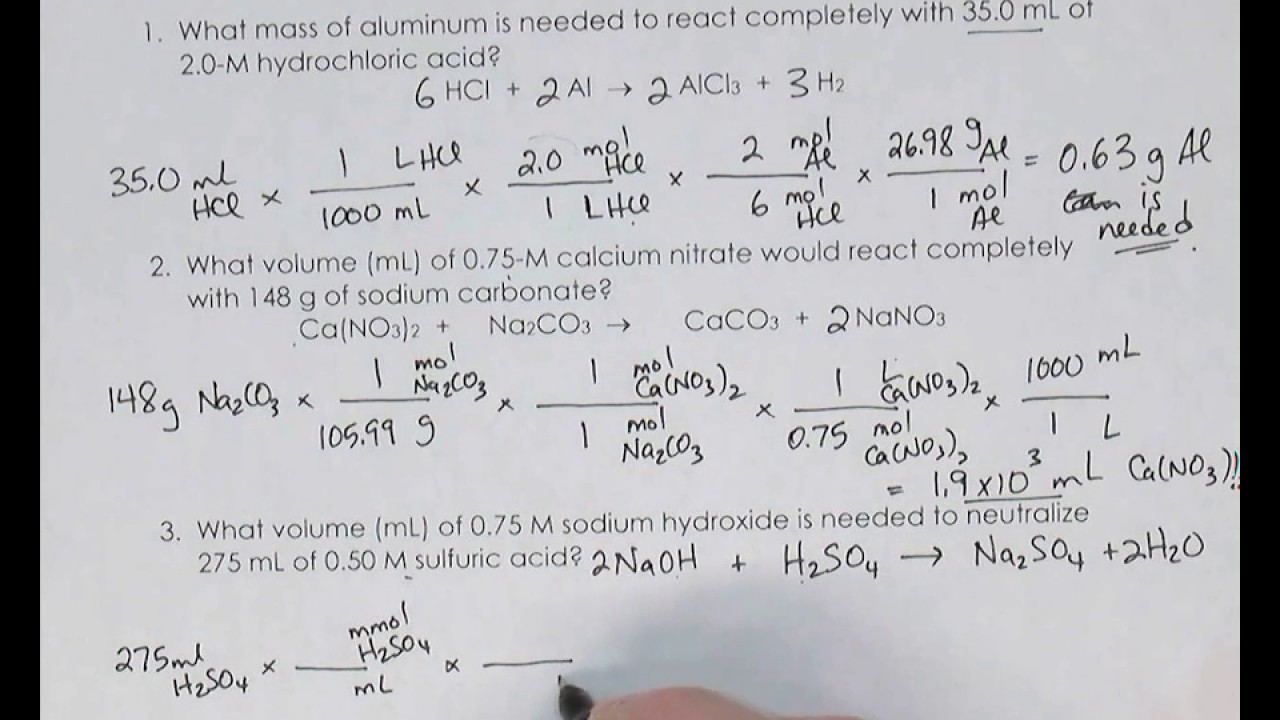 1. What mass of aluminum is needed to react completely with 35.0 mL of
2.0-M hydrochloric acid?
6 HCl + 2 Al → 2 AlCl3 + 3 H2
35.0 ml HCl × 1 L HCl / 1000 mL × 2.0 mol HCl / 1 L HCl × 2 mol Al / 6 mol HCl × 26.98 g Al / 1 mol Al = 0.63 g Al
is needed.
2. What volume (mL) of 0.75-M calcium nitrate would react completely
with 148 g of sodium carbonate?
Ca(NO3)2 + Na2CO3 → CaCO3 + 2 NaNO3
148g Na2CO3 × 1 mol Na2CO3 / 105.99 g × 1 mol Ca(NO3)2 / 1 mol Na2CO3 × 1 L Ca(NO3)2 / 0.75 mol Ca(NO3)2 × 1000 mL / 1 L
= 1.9 ×10³ mL Ca(NO3)
3. What volume (mL) of 0.75 M sodium hydroxide is needed to neutralize
275 mL of 0.50 M sulfuric acid? 2NaOH + H2SO4 → Na2SO4 + 2H2O
275ml H2SO4 × mmol H2SO4 / mL ×